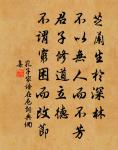 芝蘭生於深林
不以無人而不芳
君子修道立德
不謂窮困而改節
孔子家語在厄